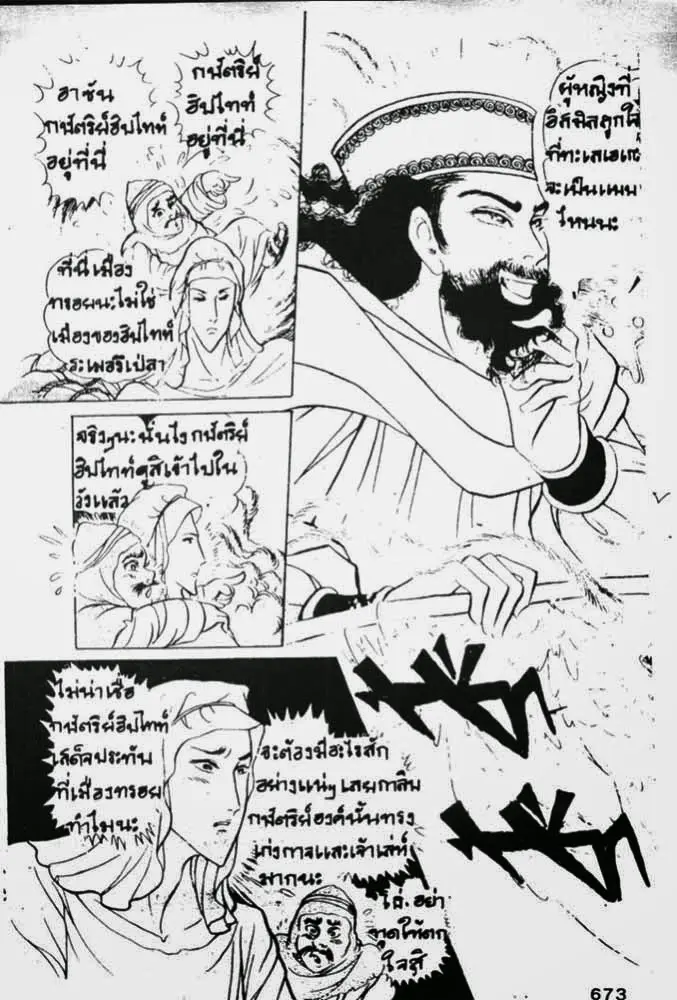 ผู้หญิงที่
อิสมิลถูกใจ
ที่ทะเลเอเก
จะเป็นแบบ
ไหนนะ
กษัตริย์
ฮิปไทท์
อยู่ที่นี่
ฮาซัน
กษัตริย์ฮิปไทท์
อยู่ที่นี่
ที่นี่เมือง
ทรอยนะไม่ใช่
เมืองของฮิปไทท์
จริงๆนะ นั่นไง กษัตริย์
ฮิปไทท์ดูสิเข้าไปใน
วังแล้ว
ไม่น่าเชื่อ
กษัตริย์ฮิปไทท์
เสด็จประทับ
ที่เมืองทรอย
ทำไมนะ
จะต้องมีอะไรสัก
อย่างแน่ๆ เลยกาลิบ
กษัตริย์องค์นั้นทรง
เก่งกาจและเจ้าเล่ห์
มากนะ
โถ่. อย่า
พูดให้ตก
ใจสิ
673